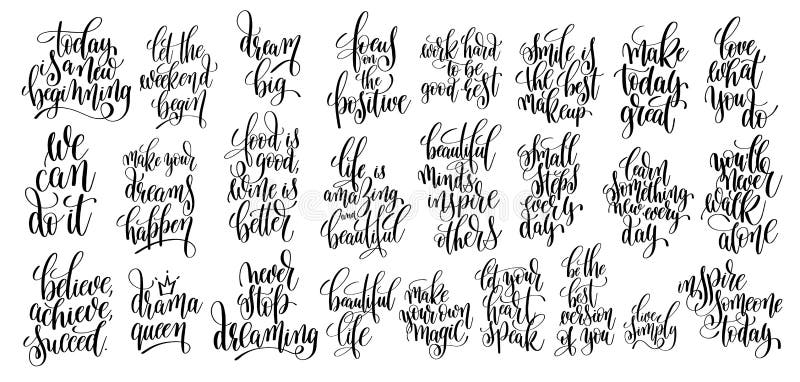 today
is a new
beginning
let the
weekend
begin
dream
big
focus
on
the
positive
work hard
to be
good rest
smile is
the best
makeup
make
today
great
love
what
you
do
we
can
do it
make your
dreams
happen
food is
good,
wine is
better
life is
amazing
and
beautiful
beautiful
minds
inspire
others
small
steps
every
day
learn
something
new every
day
you'll
never
walk
alone
believe,
achieve,
succeed.
drama
queen
never
stop
dreaming
beautiful
life
make
your own
magic
let your
heart
speak
be the
best
version
of you
live
simply
inspire
someone
today